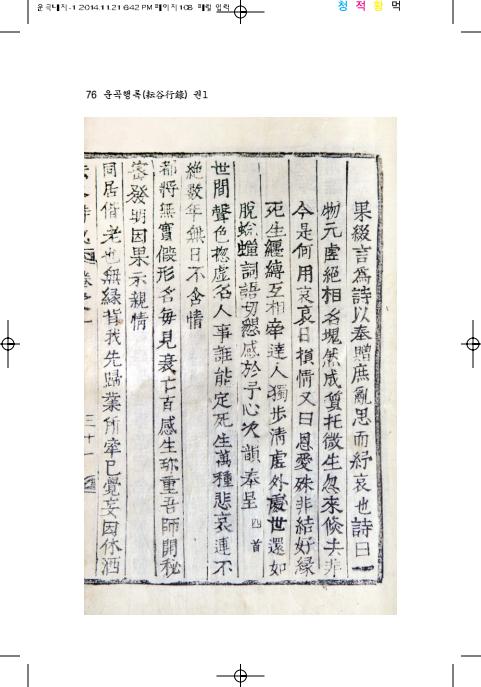 운곡내지-1 2014.11.21 6:42 PM 페이지108 매킨 입력
청 적 황 먹
76 운곡행록(耘谷行錄) 권1
果綴言爲詩以奉贈庶亂思而紓哀也詩曰一
物元虛絶相名塊然成質托微生忽來倏去非
今是何用哀哀日損情又曰恩愛殊非結好緣
死生纏縛互相牽達人獨步淸虛外處世還如
脫蛻蟬詞語切懇感於予心次韻奉呈 四首
世間聲色摠虛名人事誰能定死生萬種悲哀連不
絶數年無日不含情
都將無實假形名每見衰亡百感生珎重吾師開秘
密發明因果示親情
同居偕老也無緣背我先歸業所牽已覺妄因休洒
三十一